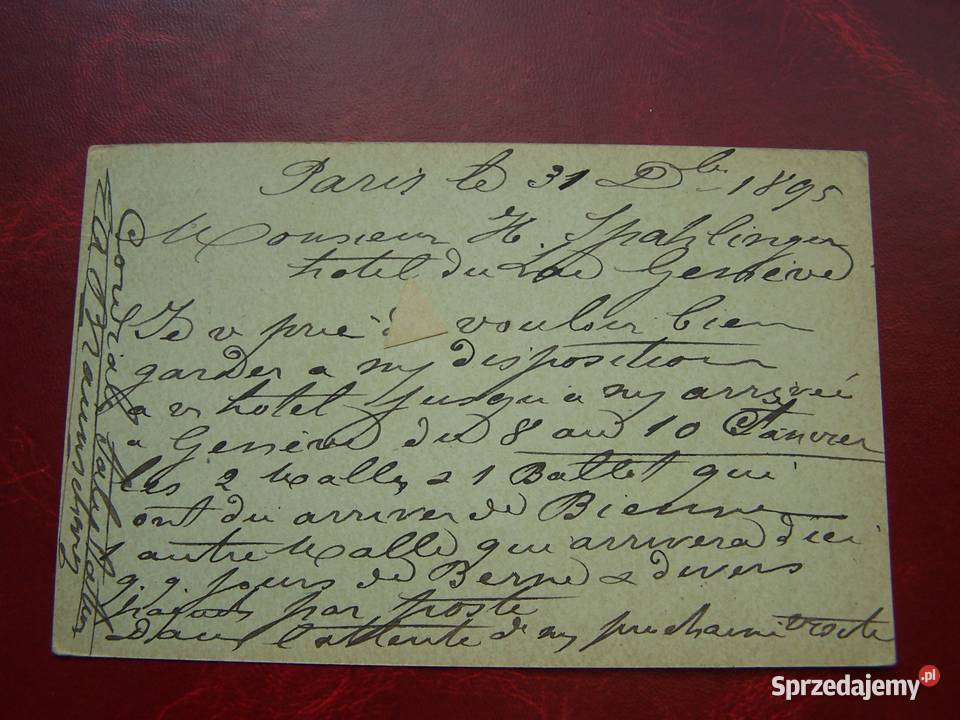 Paris le 31 Dbre 1895
Monsieur H. Spahlinger
hotel du Lac Genève
Je v prie d vouloir bien
garder a my disposition
a v hotel jusqu'a my arrivée
a Genève du 8 au 10 Janvier
les 2 Malles & 1 Ballot qui
ont du arriver de Bienne
1 autre Malle qui arrivera d'ici
q. q. jours de Berne & divers
par poste
Dans l'attente de my prochaine visite
Cordiales Salutations
Ed Braunschweig
Sprzedajemy.pl